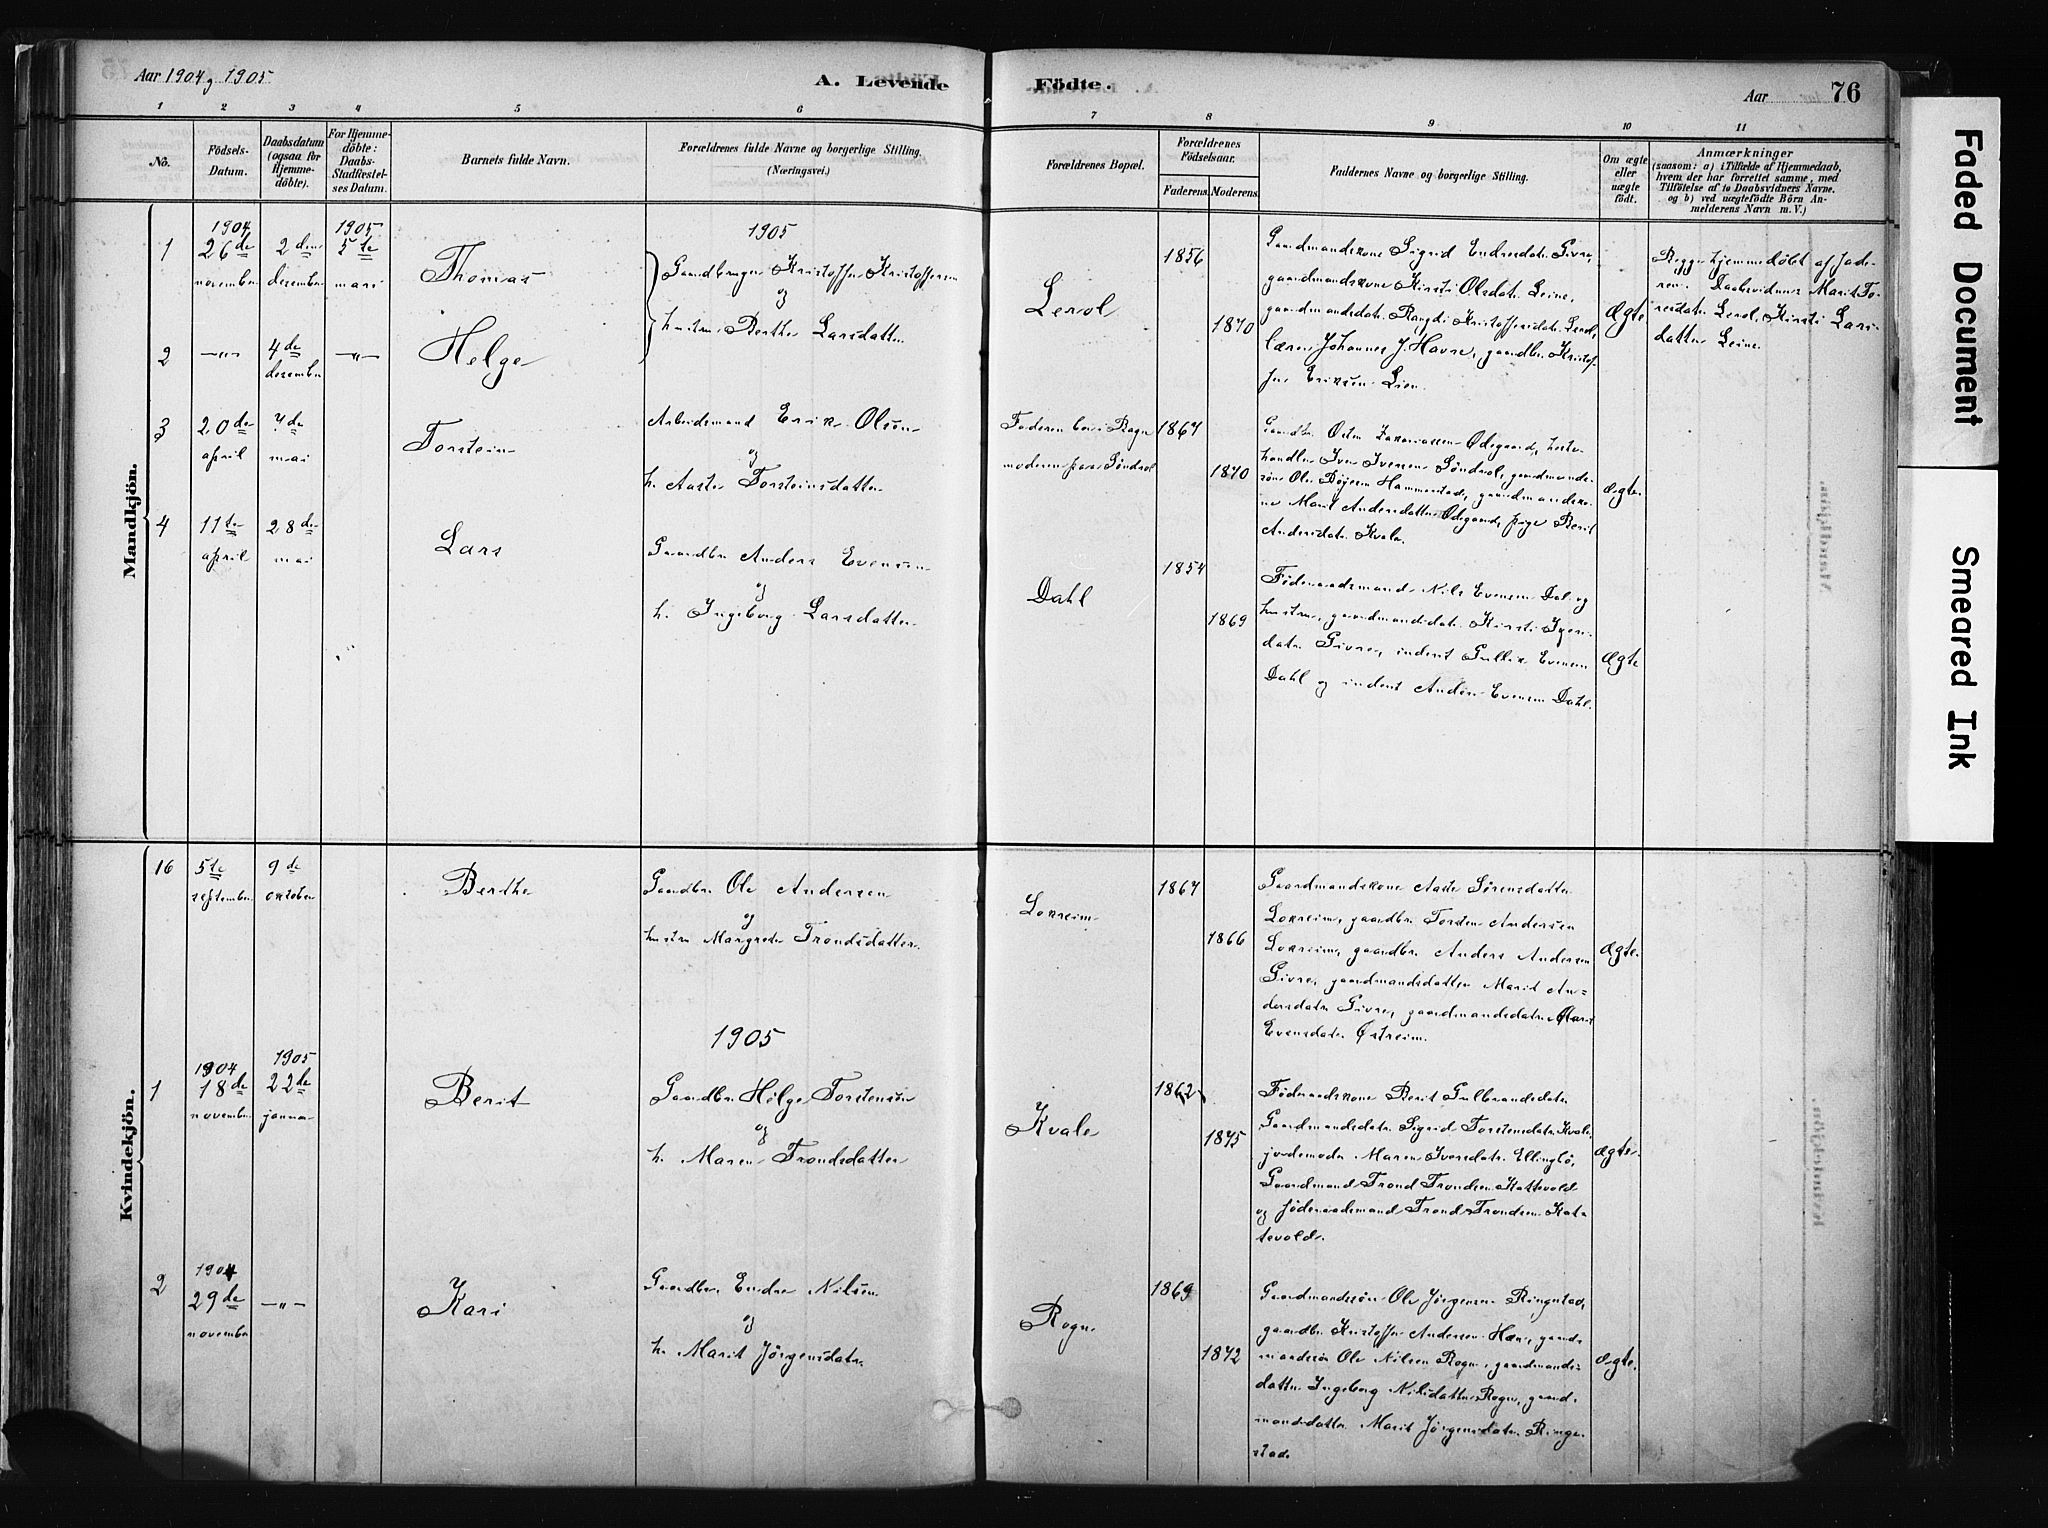 Aar 1904 og 1905
A. Levende
Födte.
Aar
76
1 2 3 4 5 6 7 8 9 10 11
No.
Födsels-
Datum.
Daabsdatum
(ogsaa for
Hjemme-
döbte).
For Hjemme-
döbte:
Daabs-
Stadfæstel-
ses Datum.
Barnets fulde Navn.
Forældrenes fulde Navne og borgerlige Stilling.
(Næringsvei.)
Forældrenes Bopæl.
Forældrenes
Födselsaar.
Faderens. Moderens.
Faddernes Navne og borgerlige Stilling.
Om ægte
eller
uægte
födt.
Anmærkninger
(saasom: a) i Tilfælde af Hjemmedaab,
hvem der har forrettet samme, med
Tilföielse af to Daabsvidners Navne.
og b) ved uægtefödte Börn An-
melderens Navn m. V.)
Mandkjön.
1904
1905
1905
1
26de
november
2den
desember
5te
mars
Thomas
Gaardbruger Kristoffer Kristoffersen
og
hustru Berthe Larsdatter
Lerol
1856
1870
Gaardmandskone Sigrid Endresdatr Givre,
gaardmandskone Kirsti Olsdatr Leine,
gaardmandsdatr Rangdi Kristoffersdatr Lerol,
lærer Johannes J. Havre, gaardbr. Kristof-
fer Eriksen Lien.
Ægte
Begge hjemmedøbt af fade-
ren. Daabsvidner Marit To-
resdatr Lerol, Kirsti Lars-
datter Leine.
2
—"—
4de
desember
—"—
Helge
3
20de
april
7de
mai
Torstein
Arbeidsmand Erik Olsen
og
h. Aaste Torsteinsdatter
Faderen bor i Rogn
moderen paa Søndrol
1867
1870
Gaardbr. Østen Zakariassen Ødegaard, heste-
handler Iver Iversen Søndrol, gaardmands-
søn Ole Bøjesen Hammerstad, gaardmandsko-
ne Marit Andersdatter Ødegaard, pige Berit
Andersdatr Kvale.
Ægte
4
11te
april
28de
mai
Lars
Gaardbr. Anders Evensen
og
h. Ingeborg Larsdatter
Dahl
1854
1869
Føderaadsmand Nils Evensen Dal og
hustru, gaardmandsdatr Kirsti Iver-
datr Givre, inderst Gullik Evensen
Dahl og inderst Anders Evensen Dahl.
Ægte
Kvindekjön.
16
5te
september
9de
oktober
Berthe
Gaardbr. Ole Andersen
og
hustru Margrete Trondsdatter
Lokreim
1867
1866
Gaardmandskone Aaste Sørensdatter
Lokreim, gaardbr. Torsten Andersen
Lokreim, gaardbr. Anders Andersen
Givre, gaardmandsdatter Marit An-
dersdatr Givre, gaardmandsdatr
Evensdatr Østreim.
Ægte.
1905
1904
1905
1
18de
november
22de
januar
Berit
Gaardbr. Helge Torstensøn
og
h. Maren Trondsdatter
Kvale
1862
1875
Føderaadskone Berit Gulbrandsdatr
Gaardmandsdatr Sigrid Torstensdatr Kvale,
jordemoder Maren Iversdatr Ellingbø,
Gaardmand Trond Trondsen Kattevold
og føderaadsmand Trond Trondsen Kat-
tevold.
Ægte.
1904
2
29de
november
—"—
Kari
Gaardbr. Endre Nilsen
og
h. Marit Jørgensdatr.
Rogn
1869
1872
Gaardmandssøn Ole Jørgensen Ringestad,
gaardbr. Kristoffer Andersen Hæn, gaard-
mandssøn Ole Nilsen Rogn, gaardmands-
datter Ingeborg Nilsdatter Rogn, gaard-
mandsdatter Marit Jørgensdatr Ringe-
stad.
Ægte.
Faded Document
Smeared Ink